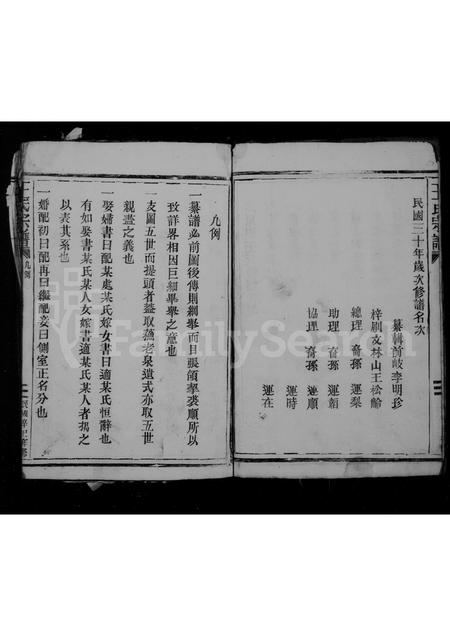 王氏宗譜
民國三十年歲次修譜名次
纂輯前岐李明珍
梓刷文林山王松齡
總理 裔孫 運梨
助理 裔孫 運朝
協理 裔孫 運順
運時
運在
凡例
一纂譜必前圖後傳則綱舉而目張領挈裘順所以
致詳畧相因巨細畢舉之意也
一支圖五世而提頭者蓋取蘇老泉遺式亦取五世
親盡之義也
一娶婦書曰配某處某氏嫁女書曰適某氏恒辭也
有如娶書某氏某人女嫁書適某氏某人者揭之
以表其系也
一婚配初曰配再曰繼配妾曰側室正名分也
王氏宗譜
凡例
FamilySearch